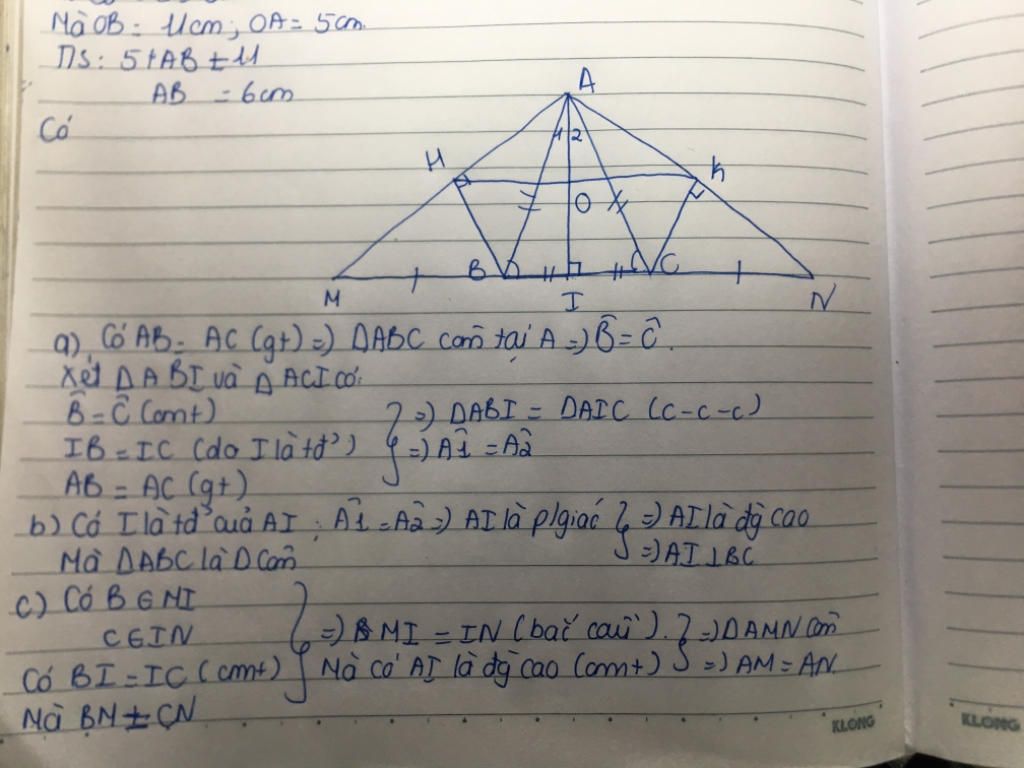 Mà OB = 11cm; OA = 5cm.
TS: 5 + AB = 11
AB = 6cm
Có
A
1 2
H
K
O
B
C
M
I
N
a) Có AB = AC (gt) => ΔABC cân tại A => B̂ = Ĉ.
Xét ΔABI và ΔACI có:
B̂ = Ĉ (cmt)
IB = IC (do I là tđ')
AB = AC (gt)
} => ΔABI = ΔAIC (c-c-c)
=> Â1 = Â2
b) Có I là tđ' của AI ; Â1 = Â2 => AI là p/giác } => AI là đg cao
Mà ΔABC là Δ cân => AI ⊥ BC
c) Có B ∈ MI
C ∈ IN
Có BI = IC (cmt)
Mà BM = CN
} => MI = IN (bắc cầu). } => ΔAMN cân
Mà có AI là đg cao (cmt) => AM = AN.
KLONG
KLONG